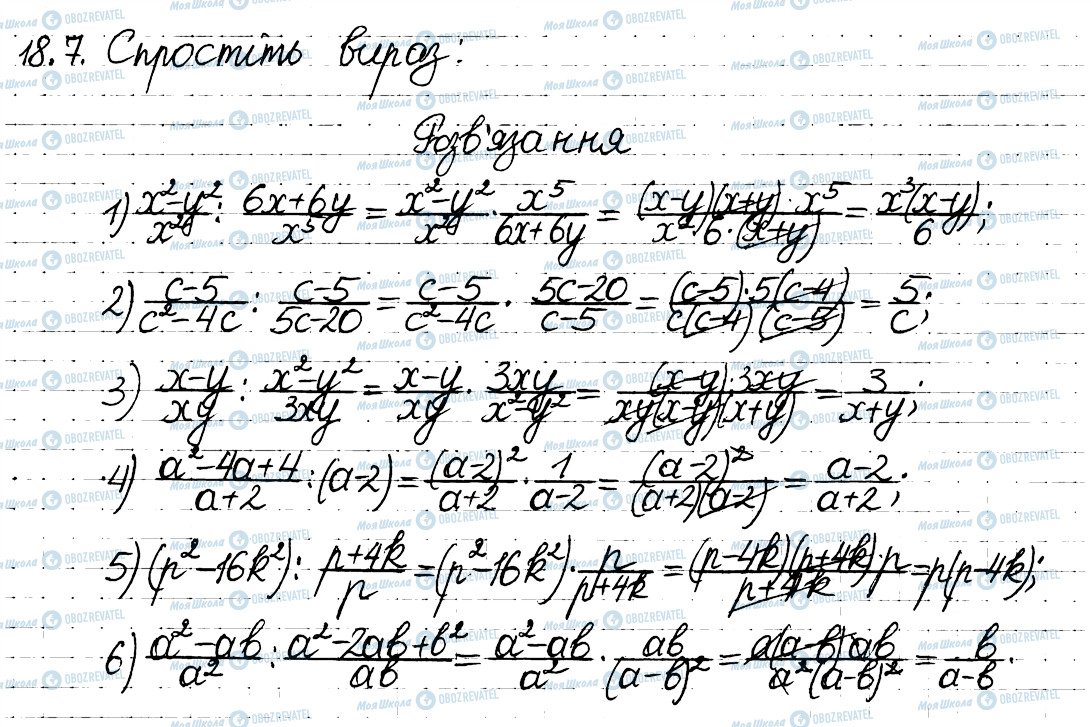 18.7. Спростіть вираз:
Розв'язання
1) (x²-y²)/x² : (6x+6y)/x⁵ = (x²-y²)/x² · x⁵/(6x+6y) = ((x-y)(x+y)·x⁵)/(x²·6·(x+y)) = x³(x-y)/6;
2) (c-5)/(c²-4c) : (c-5)/(5c-20) = (c-5)/(c²-4c) · (5c-20)/(c-5) = ((c-5)·5(c-4))/(c(c-4)(c-5)) = 5/c;
3) (x-y)/xy : (x²-y²)/3xy = (x-y)/xy · 3xy/(x²-y²) = ((x-y)·3xy)/(xy(x-y)(x+y)) = 3/(x+y);
4) (a²-4a+4)/(a+2) : (a-2) = (a-2)²/(a+2) · 1/(a-2) = (a-2)²/((a+2)(a-2)) = (a-2)/(a+2);
5) (p²-16k²) : (p+4k)/p = (p²-16k²) · p/(p+4k) = ((p-4k)(p+4k)·p)/(p+4k) = p(p-4k);
6) (a²-ab)/a² : (a²-2ab+b²)/ab = (a²-ab)/a² · ab/(a-b)² = (a(a-b)·ab)/(a²(a-b)²) = b/(a-b).
МояШкола OBOZREVATEL